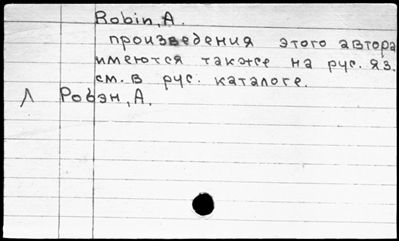 Robin, A.
произведения этого автора
имеются также на рус. яз.
см. в рус. каталоге.
Л Робэн, А.